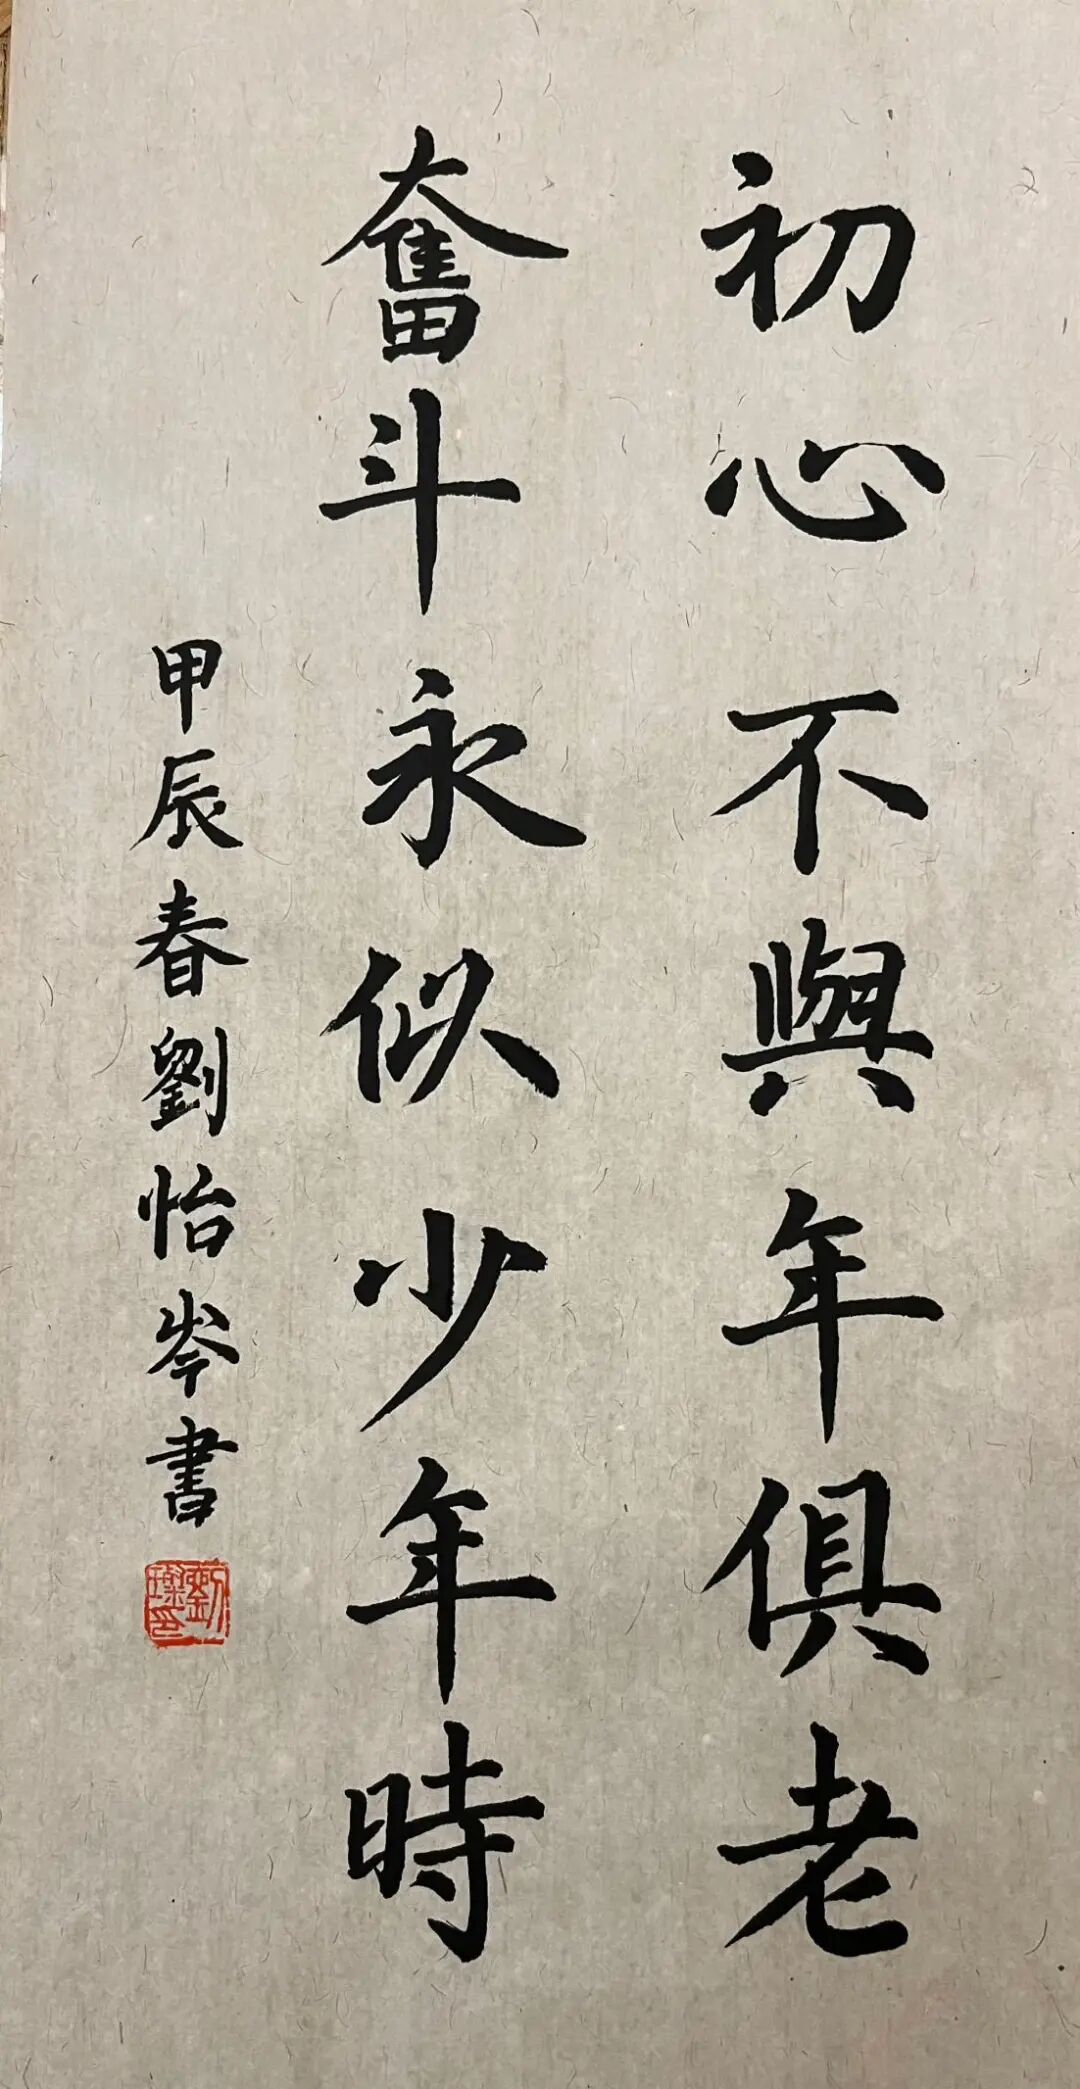 初心不與年俱老
奮斗永似少年時
甲辰春劉怡岑書
劉璨印